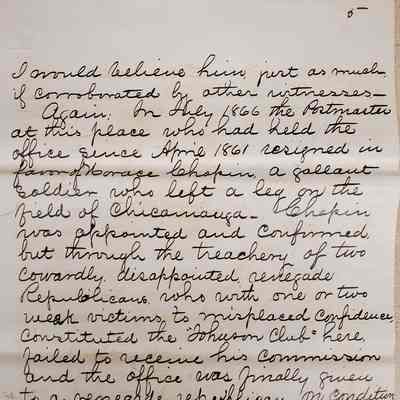 5
I would believe him, just as much
if corroborated by other witnesses—
Again; In July 1866 the Postmaster
at this place who had held the
office since April 1861 resigned in
favor of Horace Chapin, a gallant
soldier who left a leg on the
field of Chicamauga— Chapin
was appointed and confirmed,
but through the treachery of two
cowardly, disappointed, renegade
Republicans, who with one or two
weak victims, to misplaced confidence,
constituted the "Johnson Club" here,
failed to receive his commission
and the office was finally given
to a renegade republican, on condition